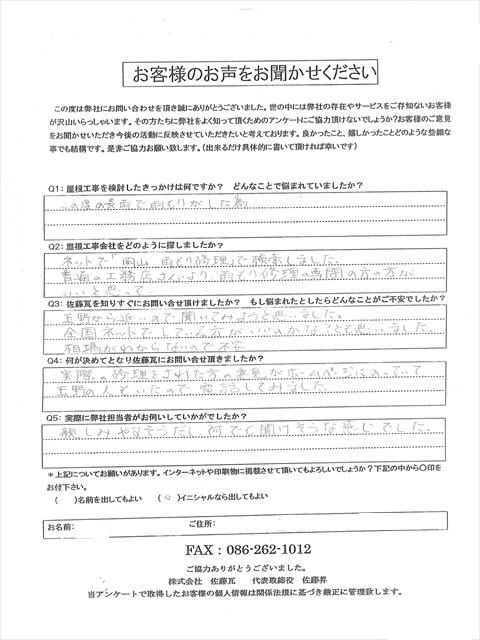 お客様のお声をお聞かせください
この度は弊社にお問い合わせを頂き誠にありがとうございました。世の中には弊社の存在やサービスをご存知ないお客様
が沢山いらっしゃいます。その方たちに弊社をよく知って頂くためのアンケートにご協力頂けないでしょうか?お客様のご意見
をお聞かせいただき今後の活動に反映させていただきたいと考えております。良かったこと、嬉しかったことどのような些細な
事でも結構です。是非ご協力お願い致します。(出来るだけ具体的に書いて頂ければ幸いです)
Q1:屋根工事を検討したきっかけは何ですか? どんなことで悩まれていましたか?
この度の長雨で雨もりがした為
Q2:屋根工事会社をどのように探しましたか?
ネットで「岡山 雨もり修理」で検索しました。
普通の工務店さんより、雨もり修理の専門の方の方が
いいと思って
Q3:佐藤瓦を知りすぐにお問い合せ頂けましたか? もし悩まれたとしたらどんなことがご不安でしたか?
玉野から近いので聞いてみようと思いました。
全国ネットで
方がいいのかな
と思いました
相場がわからないので不安
Q4:何が決めてとなり佐藤瓦にお問い合せ頂きましたか?
実際の修理をされた方の意見がホームページにのっていて
玉野の人といたので電話してみました
Q5:実際に弊社担当者がお伺いしていかがでしたか?
親しみやすそうだし、何でも聞けそうな感じでした。
*上記についてお願いがあります。インターネットや印刷物に掲載させて頂いてもよろしいでしょうか?下記の中から○印を
お付下さい。
( )名前を出してもよい (○)イニシャルなら出してもよい
お名前: ご住所:
FAX:086-262-1012
ご協力ありがとうございました。
株式会社 佐藤瓦 代表取締役 佐藤昇
当アンケートで取得したお客様の個人情報は関係法規に基づき厳正に管理致します。